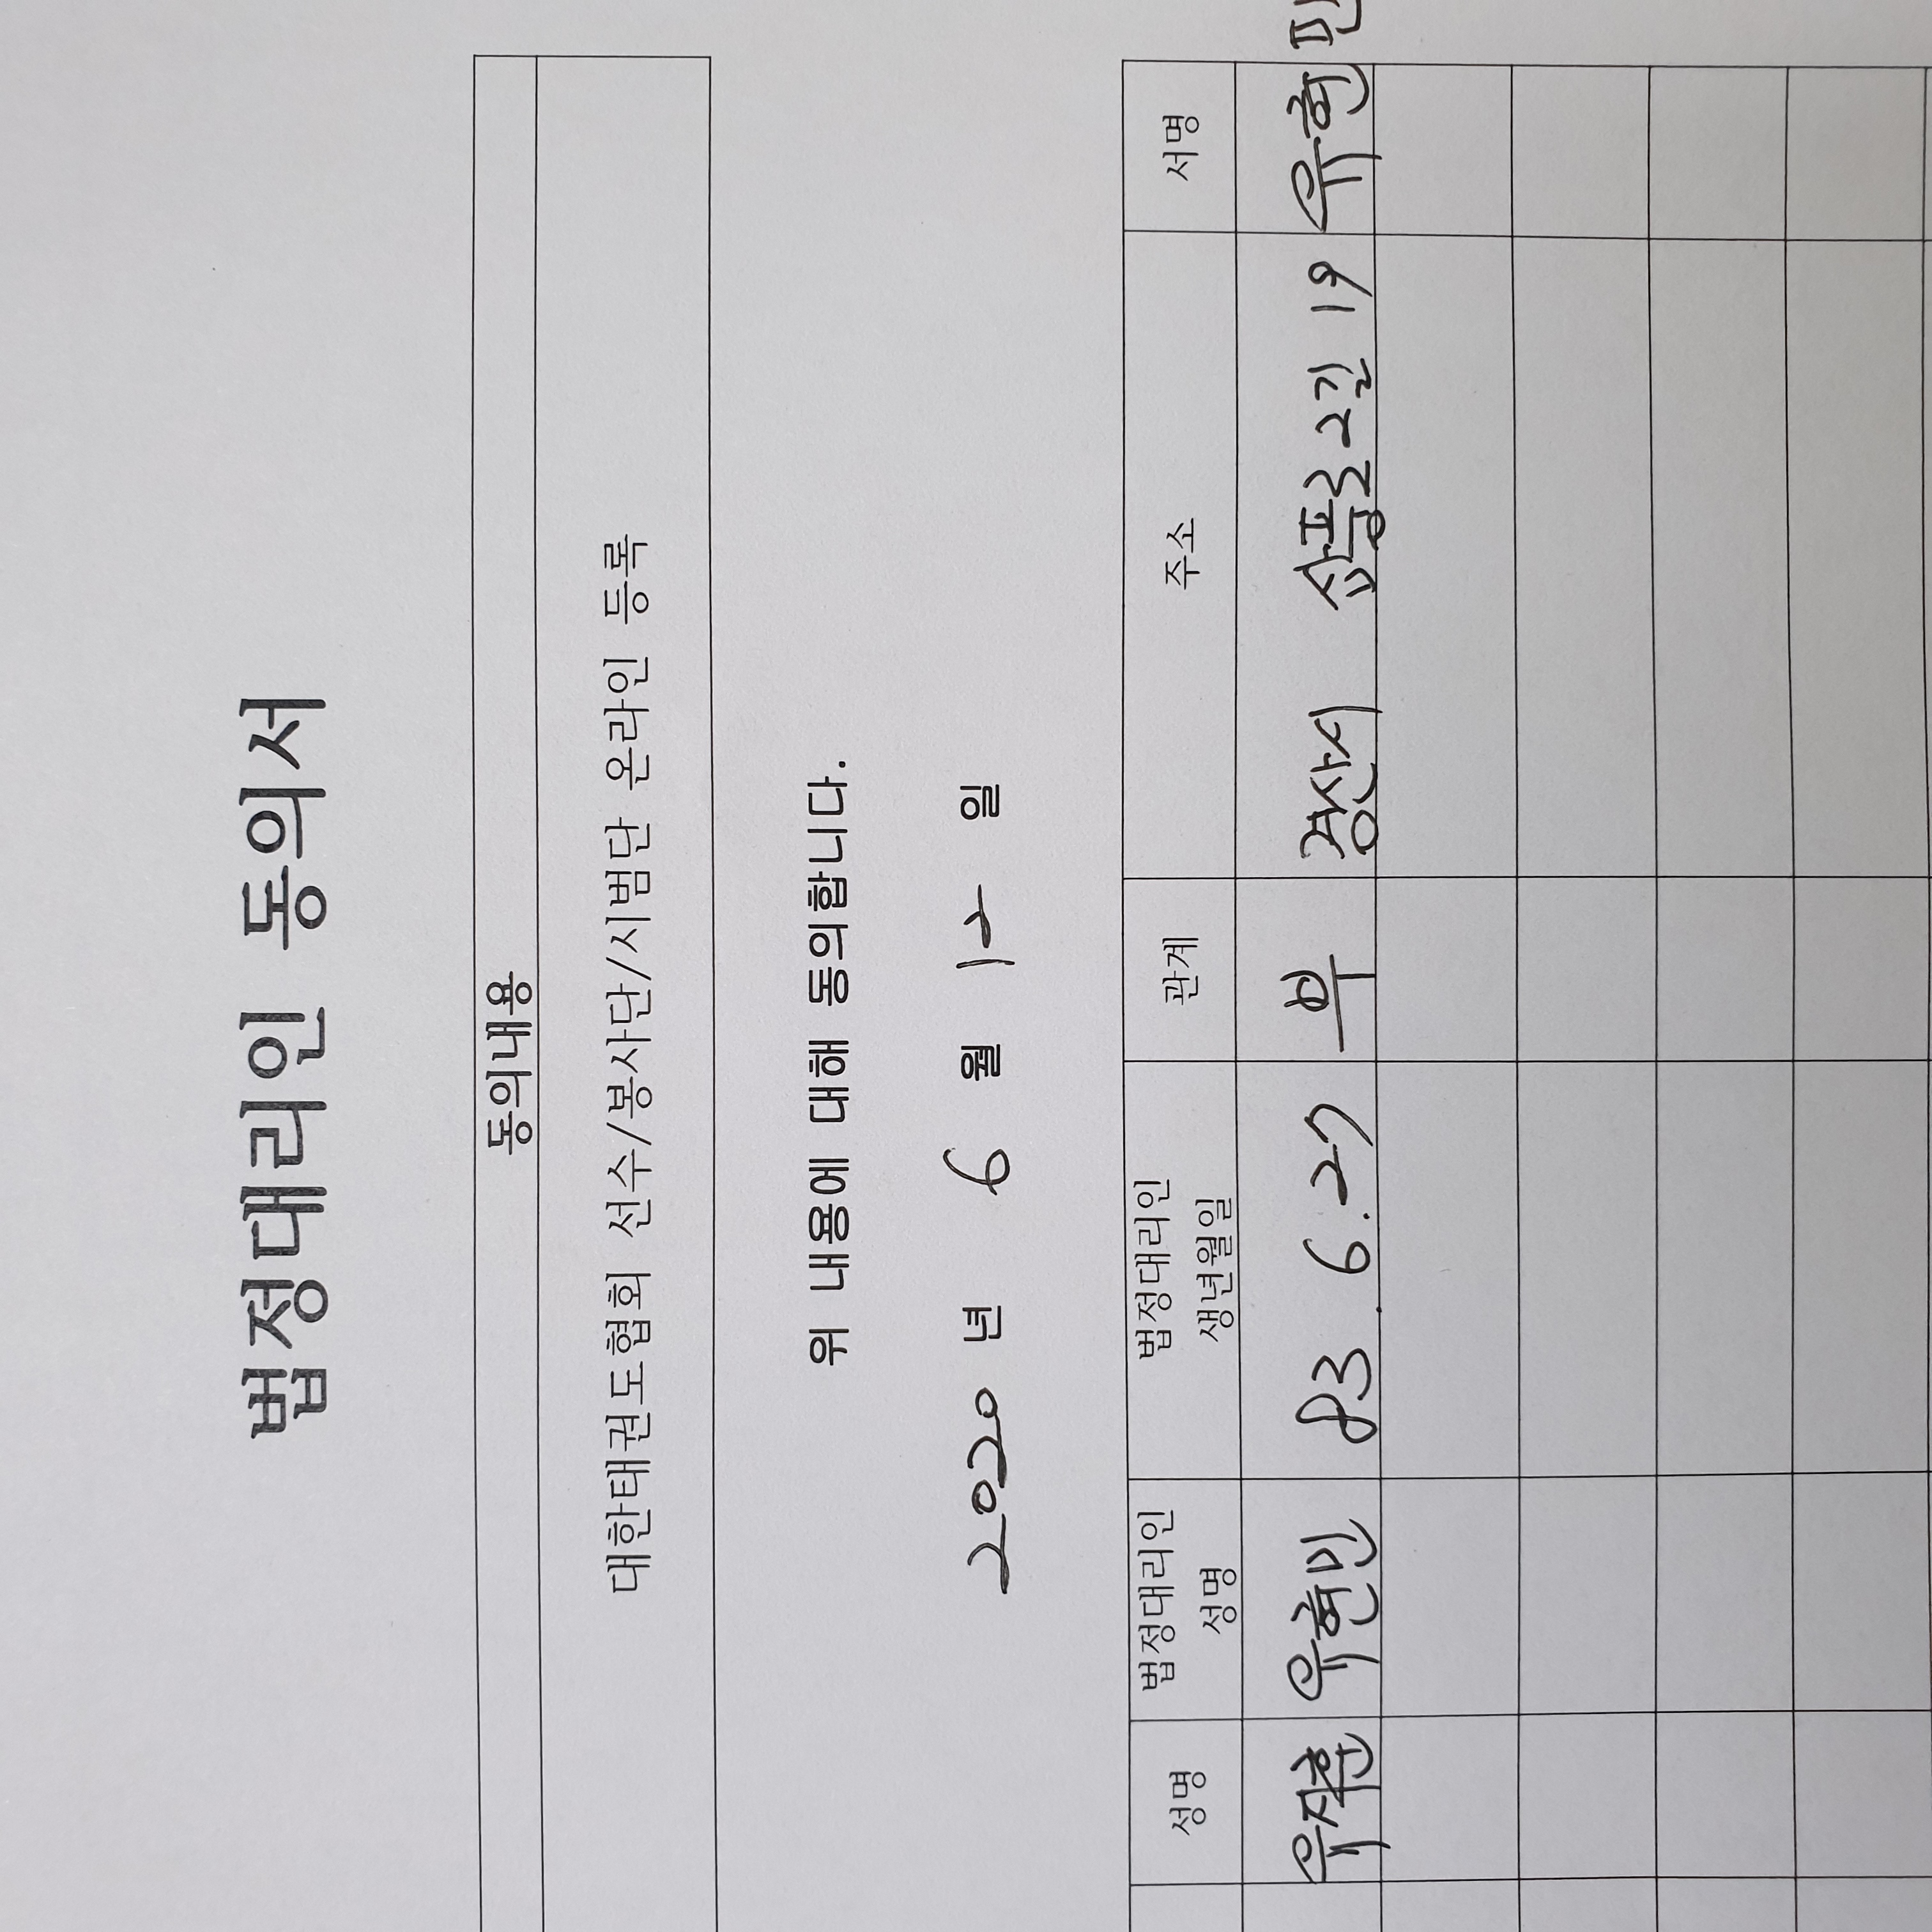 법정대리인 동의서
동의내용
대한태권도협회 선수/봉사단/시범단 온라인 등록
위 내용에 대해 동의합니다.
2020 년 6 월 12 일
성명 법정대리인 성명 법정대리인 생년월일 관계 주소 서명
유재훈 유현민 83. 6. 27 부 경산시 삼풍로2길 19 유현민